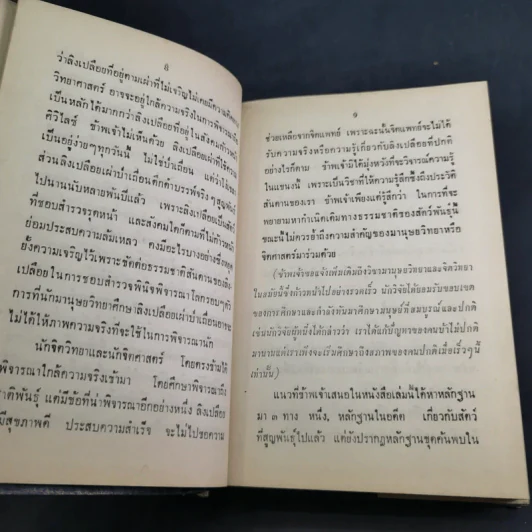 ๘
ว่าลิงเปลือยที่อยู่ตามเผ่าที่ไม่เจริญไม่เคยมีความคิดทาง
วิทยาศาสตร์ อาจจะอยู่ใกล้ความจริงในการพิจารณา
เป็นหลักได้มากกว่าลิงเปลือยที่อยู่ในสังคมก้าวหน้า
ศิวิไลซ์ ข้าพเจ้าไม่เห็นด้วย ลิงเปลือยเผ่าที่ได้
เป็นอยู่ง่ายๆทุกวันนี้ ไม่ใช่บ่าเถื่อน แต่ว่า
ส่วนลิงเปลือยเผ่าป่าเถื่อนดึกดำบรรพ์จริงๆสูญพันธุ์
ไปนานนับหลายพันปีแล้ว เพราะลิงเปลือยเป็นสัตว์
ที่ชอบสำรวจรุดหน้า และสังคมใดก็ตามที่ไม่ก้าวหน้า
ย่อมประสบความล้มเหลว คงมีอะไรบางอย่างซึ่งหยุด
ยั้งความเจริญไว้เพราะขัดต่อธรรมชาติสันดานของลิง
เปลือยในการชอบสำรวจพินิจพิจารณาโลกรอบๆตัว
การที่นักมานุษยวิทยาศึกษาลิงเปลือยเผ่าป่าเถื่อนอาจจะ
ไม่ได้ให้ภาพความจริงที่จะใช้ในการพิจารณานัก
นักจิตวิทยาและนักจิตศาสตร์ โดยตรงข้ามได้
พิจารณาใกล้ความจริงเข้ามา โดยศึกษาพิจารณาถึง
าติพันธุ์ แต่มีข้อที่น่าพิจารณาอีกอย่างหนึ่ง ลิงเปลือย
มีสุขภาพดี ประสบความสำเร็จ จะไม่ไปขอความ
9
ช่วยเหลือจากจิตแพทย์ เพราะฉะนั้นจิตแพทย์จะไม่ได้
รับความจริงหรือความรู้เกี่ยวกับลิงเปลือยที่ปกติ
อย่างไรก็ตาม ข้าพเจ้ามิได้มุ่งหวังที่จะวิจารณ์ความรู้
ในแขนงนี้ เพราะเป็นวิชาที่ให้ความรู้ลึกซึ้งถึงประวัติ
สันดานของเรา ข้าพเจ้าเพียงแต่รู้สึกว่า ในการที่จะ
พยายามหากำเนิดเดิมทางธรรมชาติของสัตว์พันธุ์นี้
ขณะนี้ไม่ควรย้ำถึงความสำคัญของมานุษยวิทยาหรือ
จิตศาสตร์มาร่วมด้วย
(ข้าพเจ้าขอแจ้งเพิ่มเติมถึงวิชามานุษยวิทยาและจิตวิทยา
ในสมัยนี้ซึ่งก้าวหน้าไปอย่างรวดเร็ว นักวิจัยได้ยอมรับขอบเขต
ของการศึกษาและกำลังหันมาศึกษามนุษย์ที่สมบูรณ์และปกติ
เช่นนักวิจัยผู้หนึ่งได้กล่าวว่า เราได้แก้ปัญหาของคนบ้าไม่ปกติ
มานานแต่เราเพิ่งจะเริ่มศึกษาถึงสภาพของคนปกติเมื่อเร็วๆนี้
เท่านั้น)
แนวที่ข้าพเจ้าเสนอในหนังสือเล่มนี้ได้หาหลักฐาน
มา ๓ ทาง หนึ่ง, หลักฐานในอดีต เกี่ยวกับสัตว์
ที่สูญพันธุ์ไปแล้ว แต่ยังปรากฏหลักฐานขุดค้นพบใน